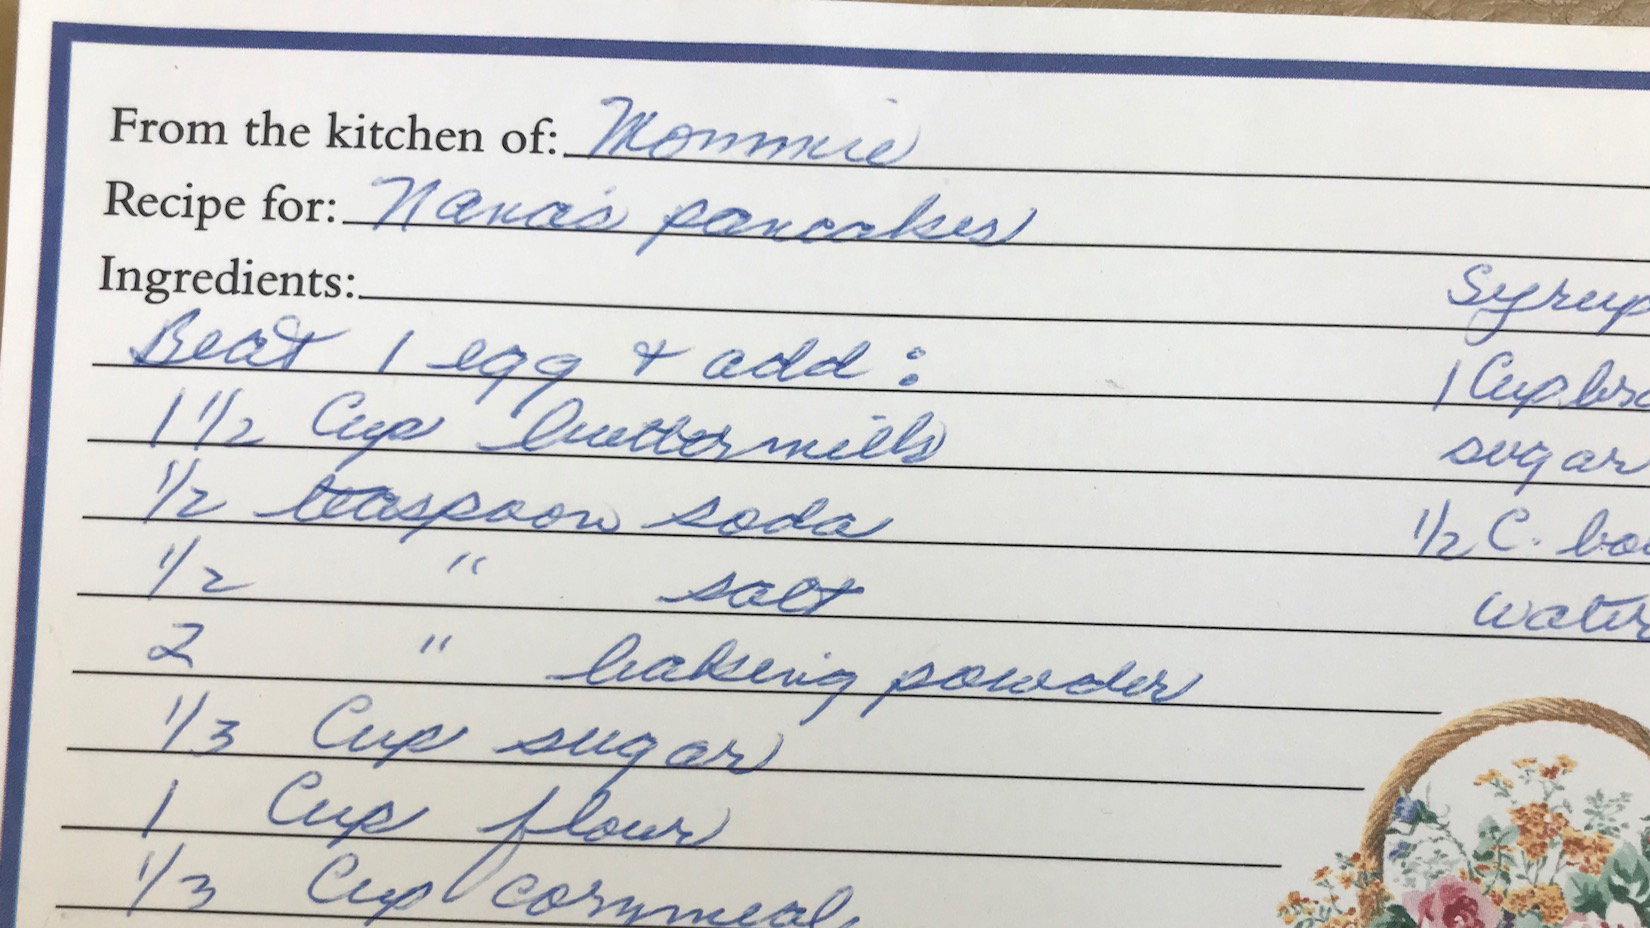 From the kitchen of: Mommie
Recipe for: Nana's pancakes
Ingredients:
Beat 1 egg & add:
1 1/2 Cup buttermilk
1/2 teaspoon soda
1/2 " salt
2 " baking powder
1/3 Cup sugar
1 Cup flour
1/3 Cup cornmeal
Syrup
1 Cup bro
sugar
1/2 C. bo
water